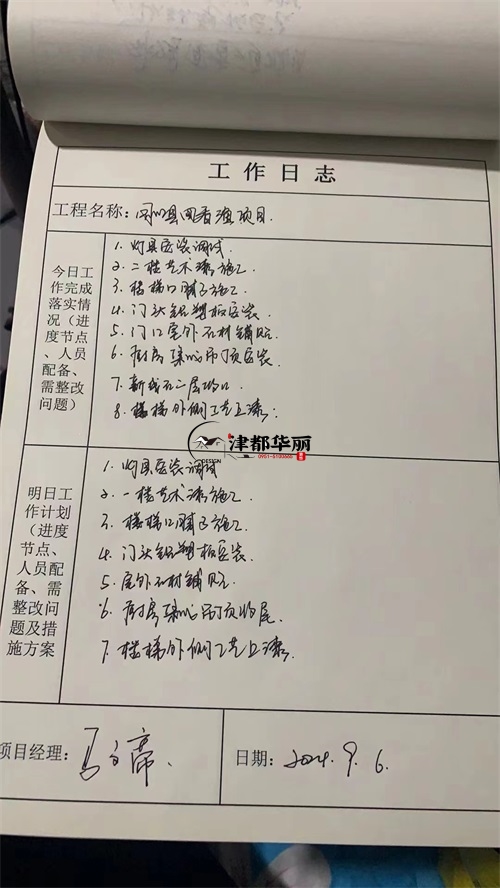 工作日志
工程名称:
项目.
今日工作完成落实情况（进度节点、人员配备、需整改问题）
1. 灯具安装调试.
2. 二楼艺术漆施工.
3. 楼梯口腻子施工.
4. 门头铝塑板安装.
5. 门口室外石材铺贴.
6. 厨房 吊顶安装.
7.
8. 楼梯外侧工艺上漆;
津都华丽
DESIGN
明日工作计划（进度节点、人员配备、需整改问题及措施方案
1. 灯具安装调试
2. 一楼艺术漆施工.
3. 楼梯口腻子施工.
4. 门头铝塑板安装.
5. 室外石材铺贴.
6. 厨房 吊顶收尾.
7. 楼梯外侧工艺上漆.
项目经理:
日期: 2024. 9. 6.